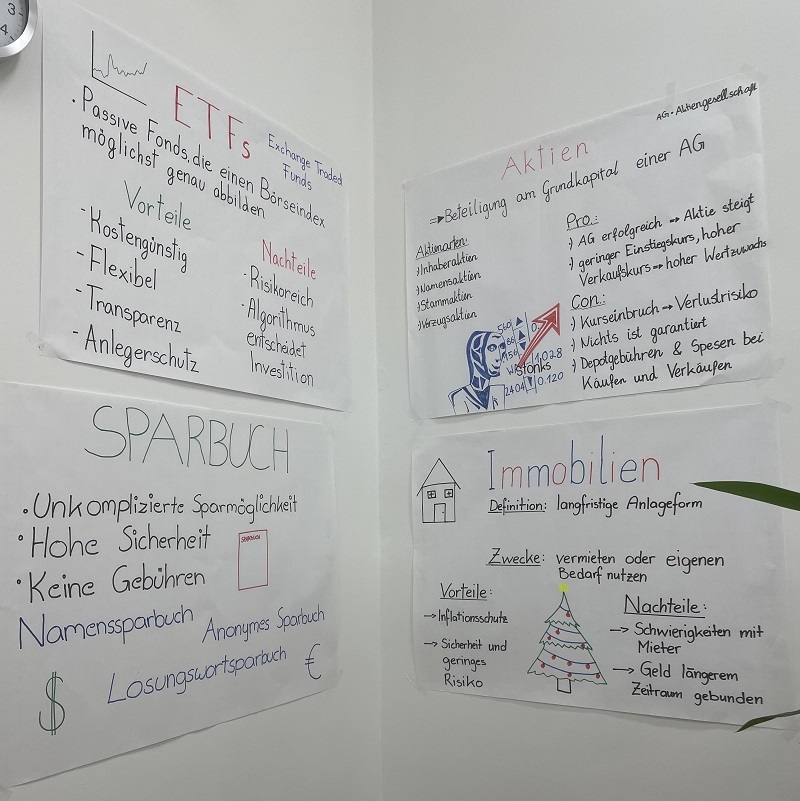 3
4
ETFs
Exchange Traded
Funds
• Passive Fonds, die einen Börseindex
möglichst genau abbilden
Vorteile
- Kostengünstig
- Flexibel
- Transparenz
- Anlegerschutz
Nachteile
- Risikoreich
- Algorithmus
entscheidet
Investition
AG • Aktiengesellschaft
Aktien
⇒ Beteiligung am Grundkapital einer AG
Aktienarten:
·) Inhaberaktien
·) Namensaktien
·) Stammaktien
·) Vorzugsaktien
Pro.:
·) AG erfolgreich → Aktie steigt
·) geringer Einstiegskurs, hoher
Verkaufskurs → hoher Wertzuwachs
Con.:
·) Kurseinbruch → Verlustrisiko
·) Nichts ist garantiert
·) Depotgebühren & Spesen bei
Käufen und Verkäufen
stonks
1,028
2404 0.120
SPARBUCH
• Unkomplizierte Sparmöglichkeit
• Hohe Sicherheit
• Keine Gebühren
SPARBUCH
Namenssparbuch
Anonymes Sparbuch
Losungswortsparbuch
$
€
Immobilien
Definition: langfristige Anlageform
Zwecke: vermieten oder eigenen
Bedarf nutzen
Vorteile:
→ Inflationsschutz
→ Sicherheit und
geringes
Risiko
Nachteile:
→ Schwierigkeiten mit
Mieter
→ Geld längerem
Zeitraum gebunden